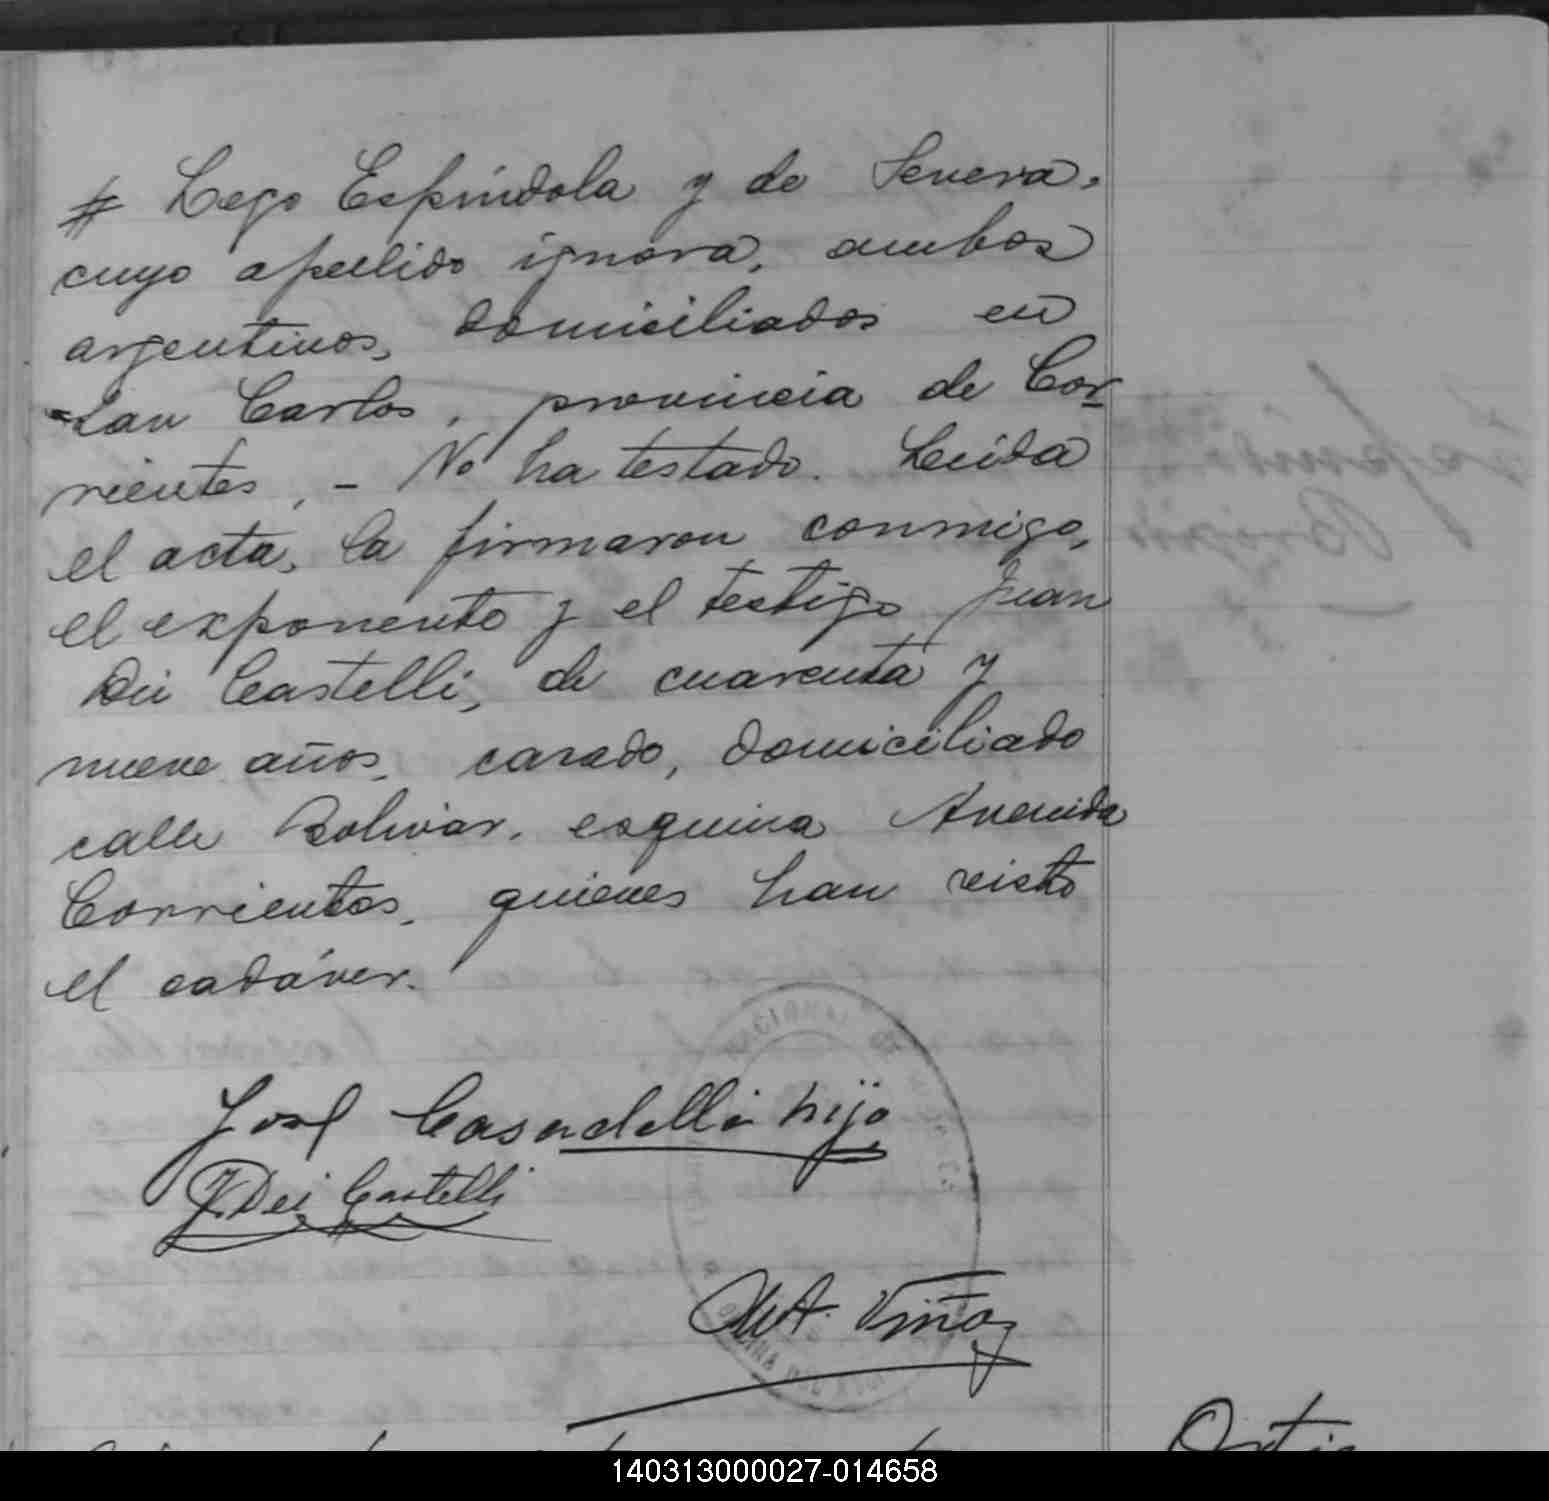 # Lego Espíndola y de Severa,
cuyo apellido ignora, ambos
argentinos, domiciliados en
San Carlos, provincia de Cor-
rientes, - No ha testado. Leída
el acta, la firmaron conmigo,
el exponente y el testigo Juan
Dei Castelli, de cuarenta y
nueve años, casado, domiciliado
calle Bolívar, esquina Avenida
Corrientes, quienes han visto
el cadáver.
José Casadellá hijo
J. Dei Castelli
A. Viñas
NACIONAL DE
140313000027-014658